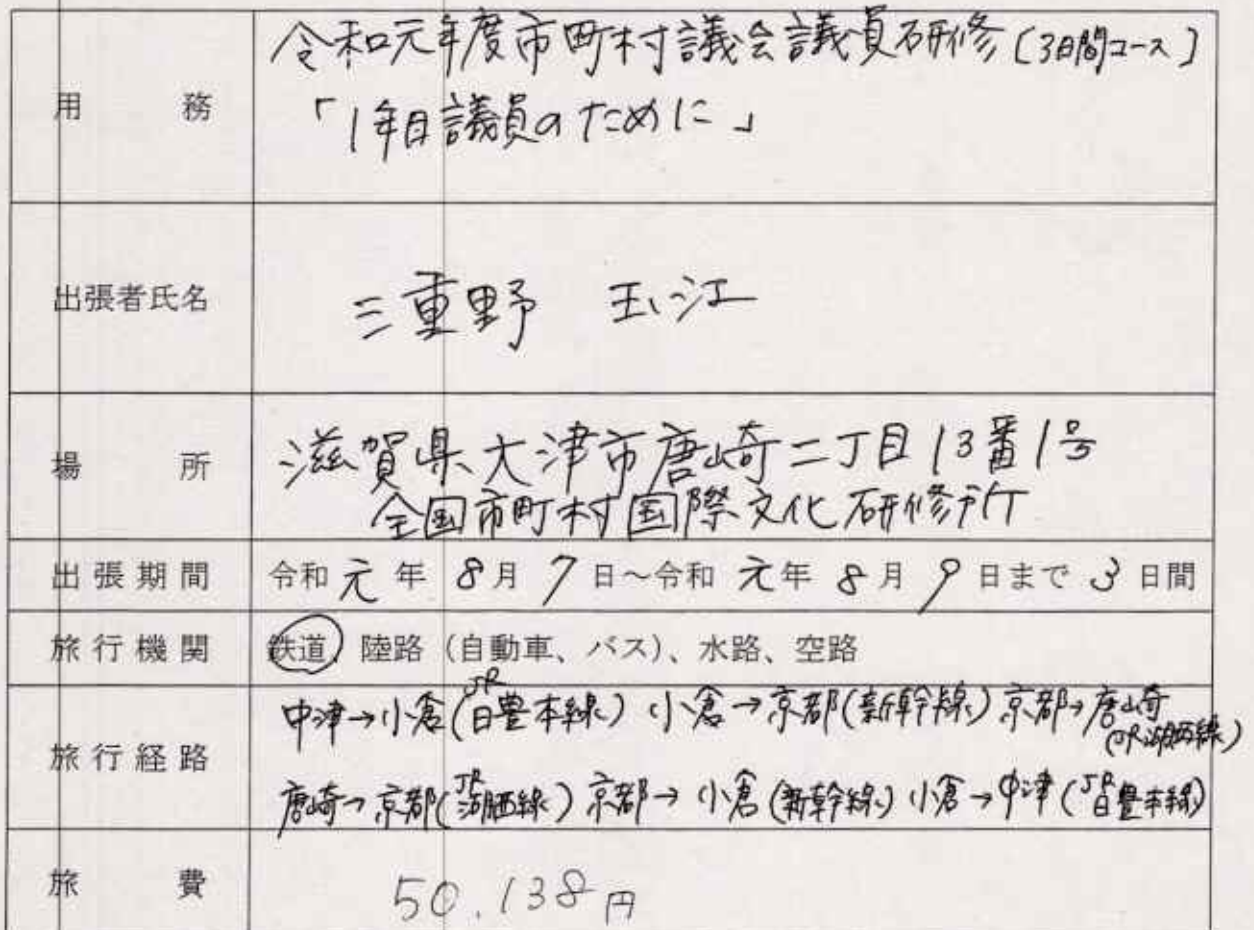 用務 令和元年度市町村議会議員研修〔3日間コース〕
「1年目議員のために」
出張者氏名 三重野 玉江
場所 滋賀県大津市唐崎二丁目13番1号
全国市町村国際文化研修所
出張期間 令和元年8月7日～令和元年8月9日まで3日間
旅行機関 鉄道、陸路(自動車、バス)、水路、空路
旅行経路 中津→小倉(JR日豊本線) 小倉→京都(新幹線) 京都→唐崎(JR湖西線)
唐崎→京都(JR湖西線) 京都→小倉(新幹線) 小倉→中津(JR日豊本線)
旅費 50.138円